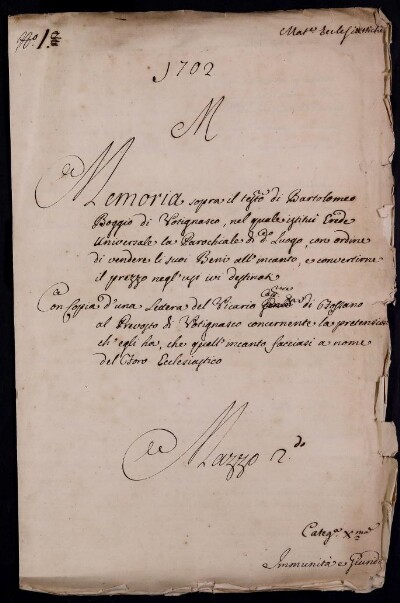 N.º 1.
Mat.ª Ecclesiastiche
1702
M
Memoria sopra il test.º di Bartolomeo
Boggio di Votignasco, nel quale istituì Erede
Universale la Parochiale di d.º Luogo, con ordine
di vendere li suoi Beni all'incanto, e convertirne
il prezzo negl'usi ivi destinati
Con Coppia d'una Lettera del Vicario di Fossano
al Prevosto di Votignasco concernente la pretensione
ch'egli ha, che quell'incanto facciasi a nome
del Foro Ecclesiastico
Mazzo 2.do
Categ.ª X.ma
Immunità e Giurisd